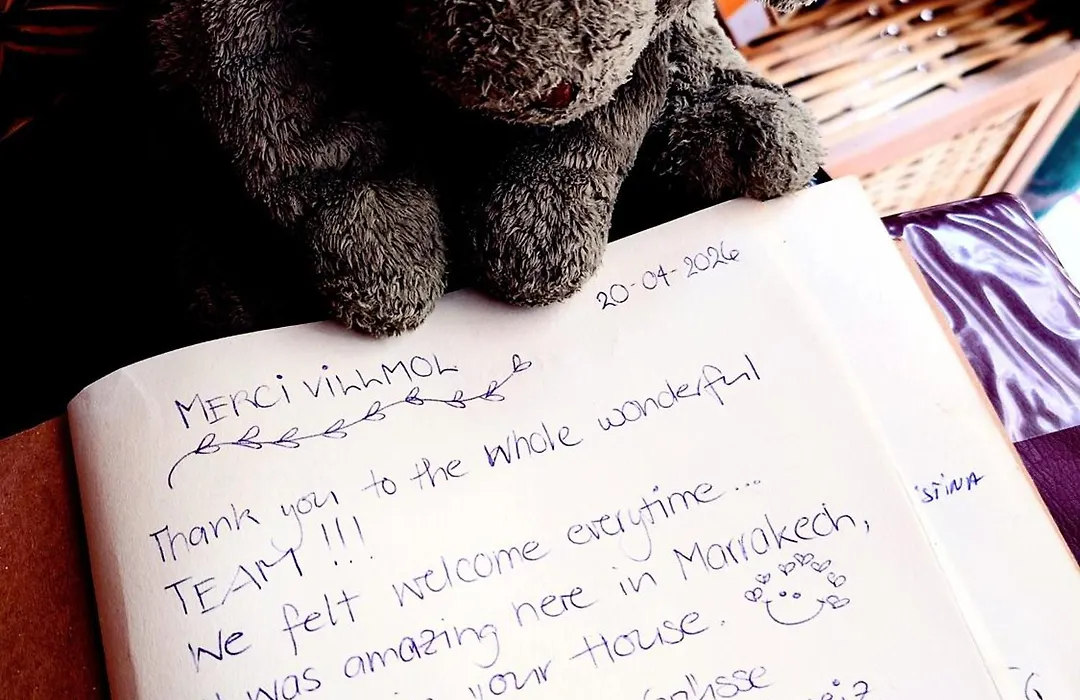 20-04-2026
MERCi ViLLMOL
Thank you to the whole wonderful
TEAM !!!
We felt welcome everytime...
was amazing here in Marrakech,
your House.